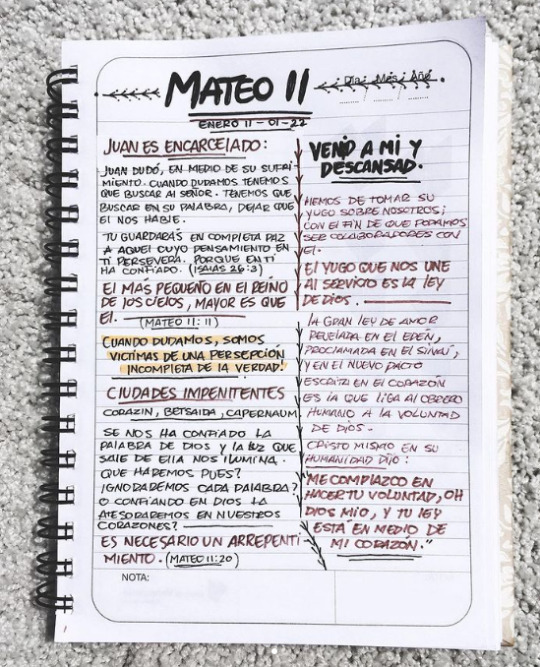 MATEO 11
Día: Mes: Año:
ENERO 11-01-22
JUAN ES ENCARCELADO:
JUAN DUDÓ, EN MEDIO DE SU SUFRI
MIENTO. CUANDO DUDAMOS TENEMOS
QUE BUSCAR AL SEÑOR. TENEMOS QUE
BUSCAR EN SU PALABRA, DEJAR QUE
EL NOS HABLE.
TU GUARDARÁS EN COMPLETA PAZ
A AQUEL CUYO PENSAMIENTO EN
TI PERSEVERA. PORQUE EN TI
HA CONFIADO. (ISAIAS 26:3)
EL MÁS PEQUEÑO EN EL REINO
DE LOS CIELOS, MAYOR ES QUE
EL.
(MATEO 11:11)
CUANDO DUDAMOS, SOMOS
VICTIMAS DE UNA PERSEPCIÓN
INCOMPLETA DE LA VERDAD!
CIUDADES IMPENITENTES
CORAZIN, BETSAIDA, CAPERNAUM
SE NOS HA CONFIADO LA
PALABRA DE DIOS Y LA LUZ QUE
SALE DE ELLA NOS ILUMINA.
QUE HAREMOS PUES?
IGNORAREMOS CADA PALABRA?
O CONFIANDO EN DIOS LA
ATESORAREMOS EN NUESTROS
CORAZONES?
ES NECESARIO UN ARREPENTI
MIENTO. (MATEO 11:20)
VENID A MI Y
DESCANSAD.
HEMOS DE TOMAR SU
YUGO SOBRE NOSOTROS;
CON EL FIN DE QUE PODAMOS
SER COLABORADORES CON
EL.
EL YUGO QUE NOS UNE
AL SERVICIO ES LA LEY
DE DIOS.
LA GRAN LEY DE AMOR
REVELADA EN EL EDÉN,
PROCLAMADA EN EL SINAÍ,
Y EN EL NUEVO PACTO
ESCRITA EN EL CORAZÓN
ES LA QUE LIGA AL OBRERO
HUMANO A LA VOLUNTAD
DE DIOS.
CRISTO MISMO EN SU
HUMANIDAD DIJO:
"ME COMPLAZCO EN
HACER TU VOLUNTAD, OH
DIOS MIO, Y TU LEY
ESTÁ EN MEDIO DE
MI CORAZÓN."
NOTA: